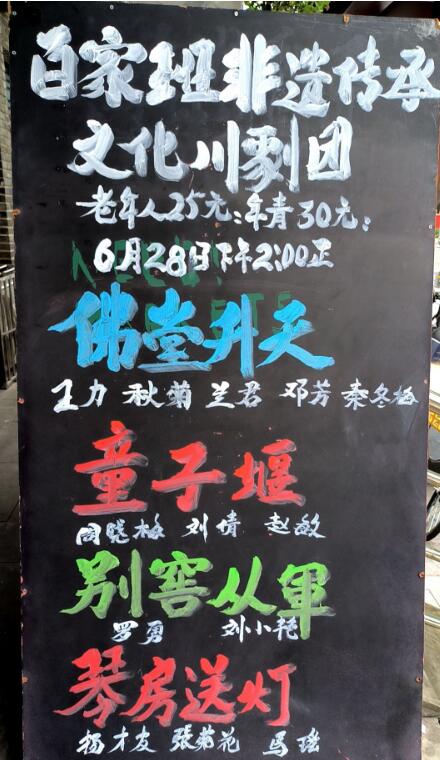 百家班非遗传承
文化川剧团
老年人25元:年青30元:
6月28日下午2:00正
佛堂升天
王力 秋菊 兰君 邓芳 秦冬梅
童子堰
周晓梅 刘倩 赵敏
别窖从军
罗勇 刘小艳
琴房送灯
杨才友 張菊花 馬瑶